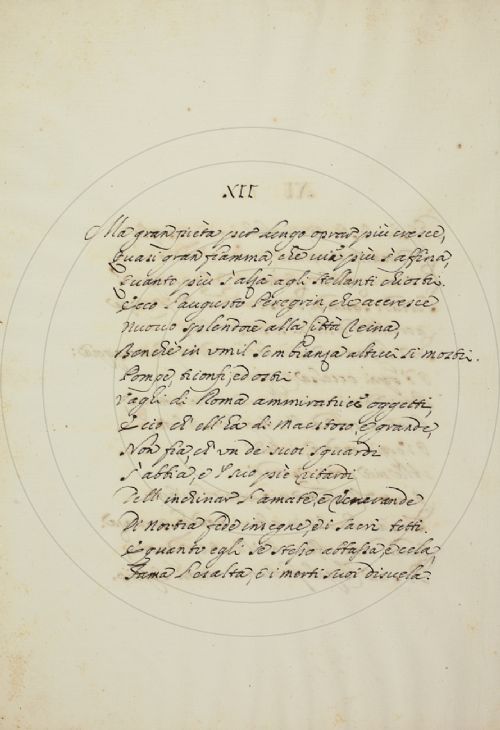 XII
Ma gran pietà per lungo oprar più cresce,
Quasi gran fiamma, che via più s'affina,
Quanto più s'alza agli stellanti chiostri.
Ecco l'augusto Peregrin, che accresce
Nuovo splendore alla Città Reina,
Benchè in umil sembianza altrui si mostri.
Pompe, trionfi, ed ostri
Vaghi di Roma ammirativi oggetti,
E ciò ch'ell'ha di Maestoso, e grande,
Non fia, ch'un de' suoi sguardi
S'abbia, e 'l suo piè ritardi
Dell'inchinar l'amate, e venerande
Di nostra fede insegne, e i sacri tetti.
E quanto egli se stesso abbassa, e cela,
Fama l'esalta, e i merti suoi disvela.